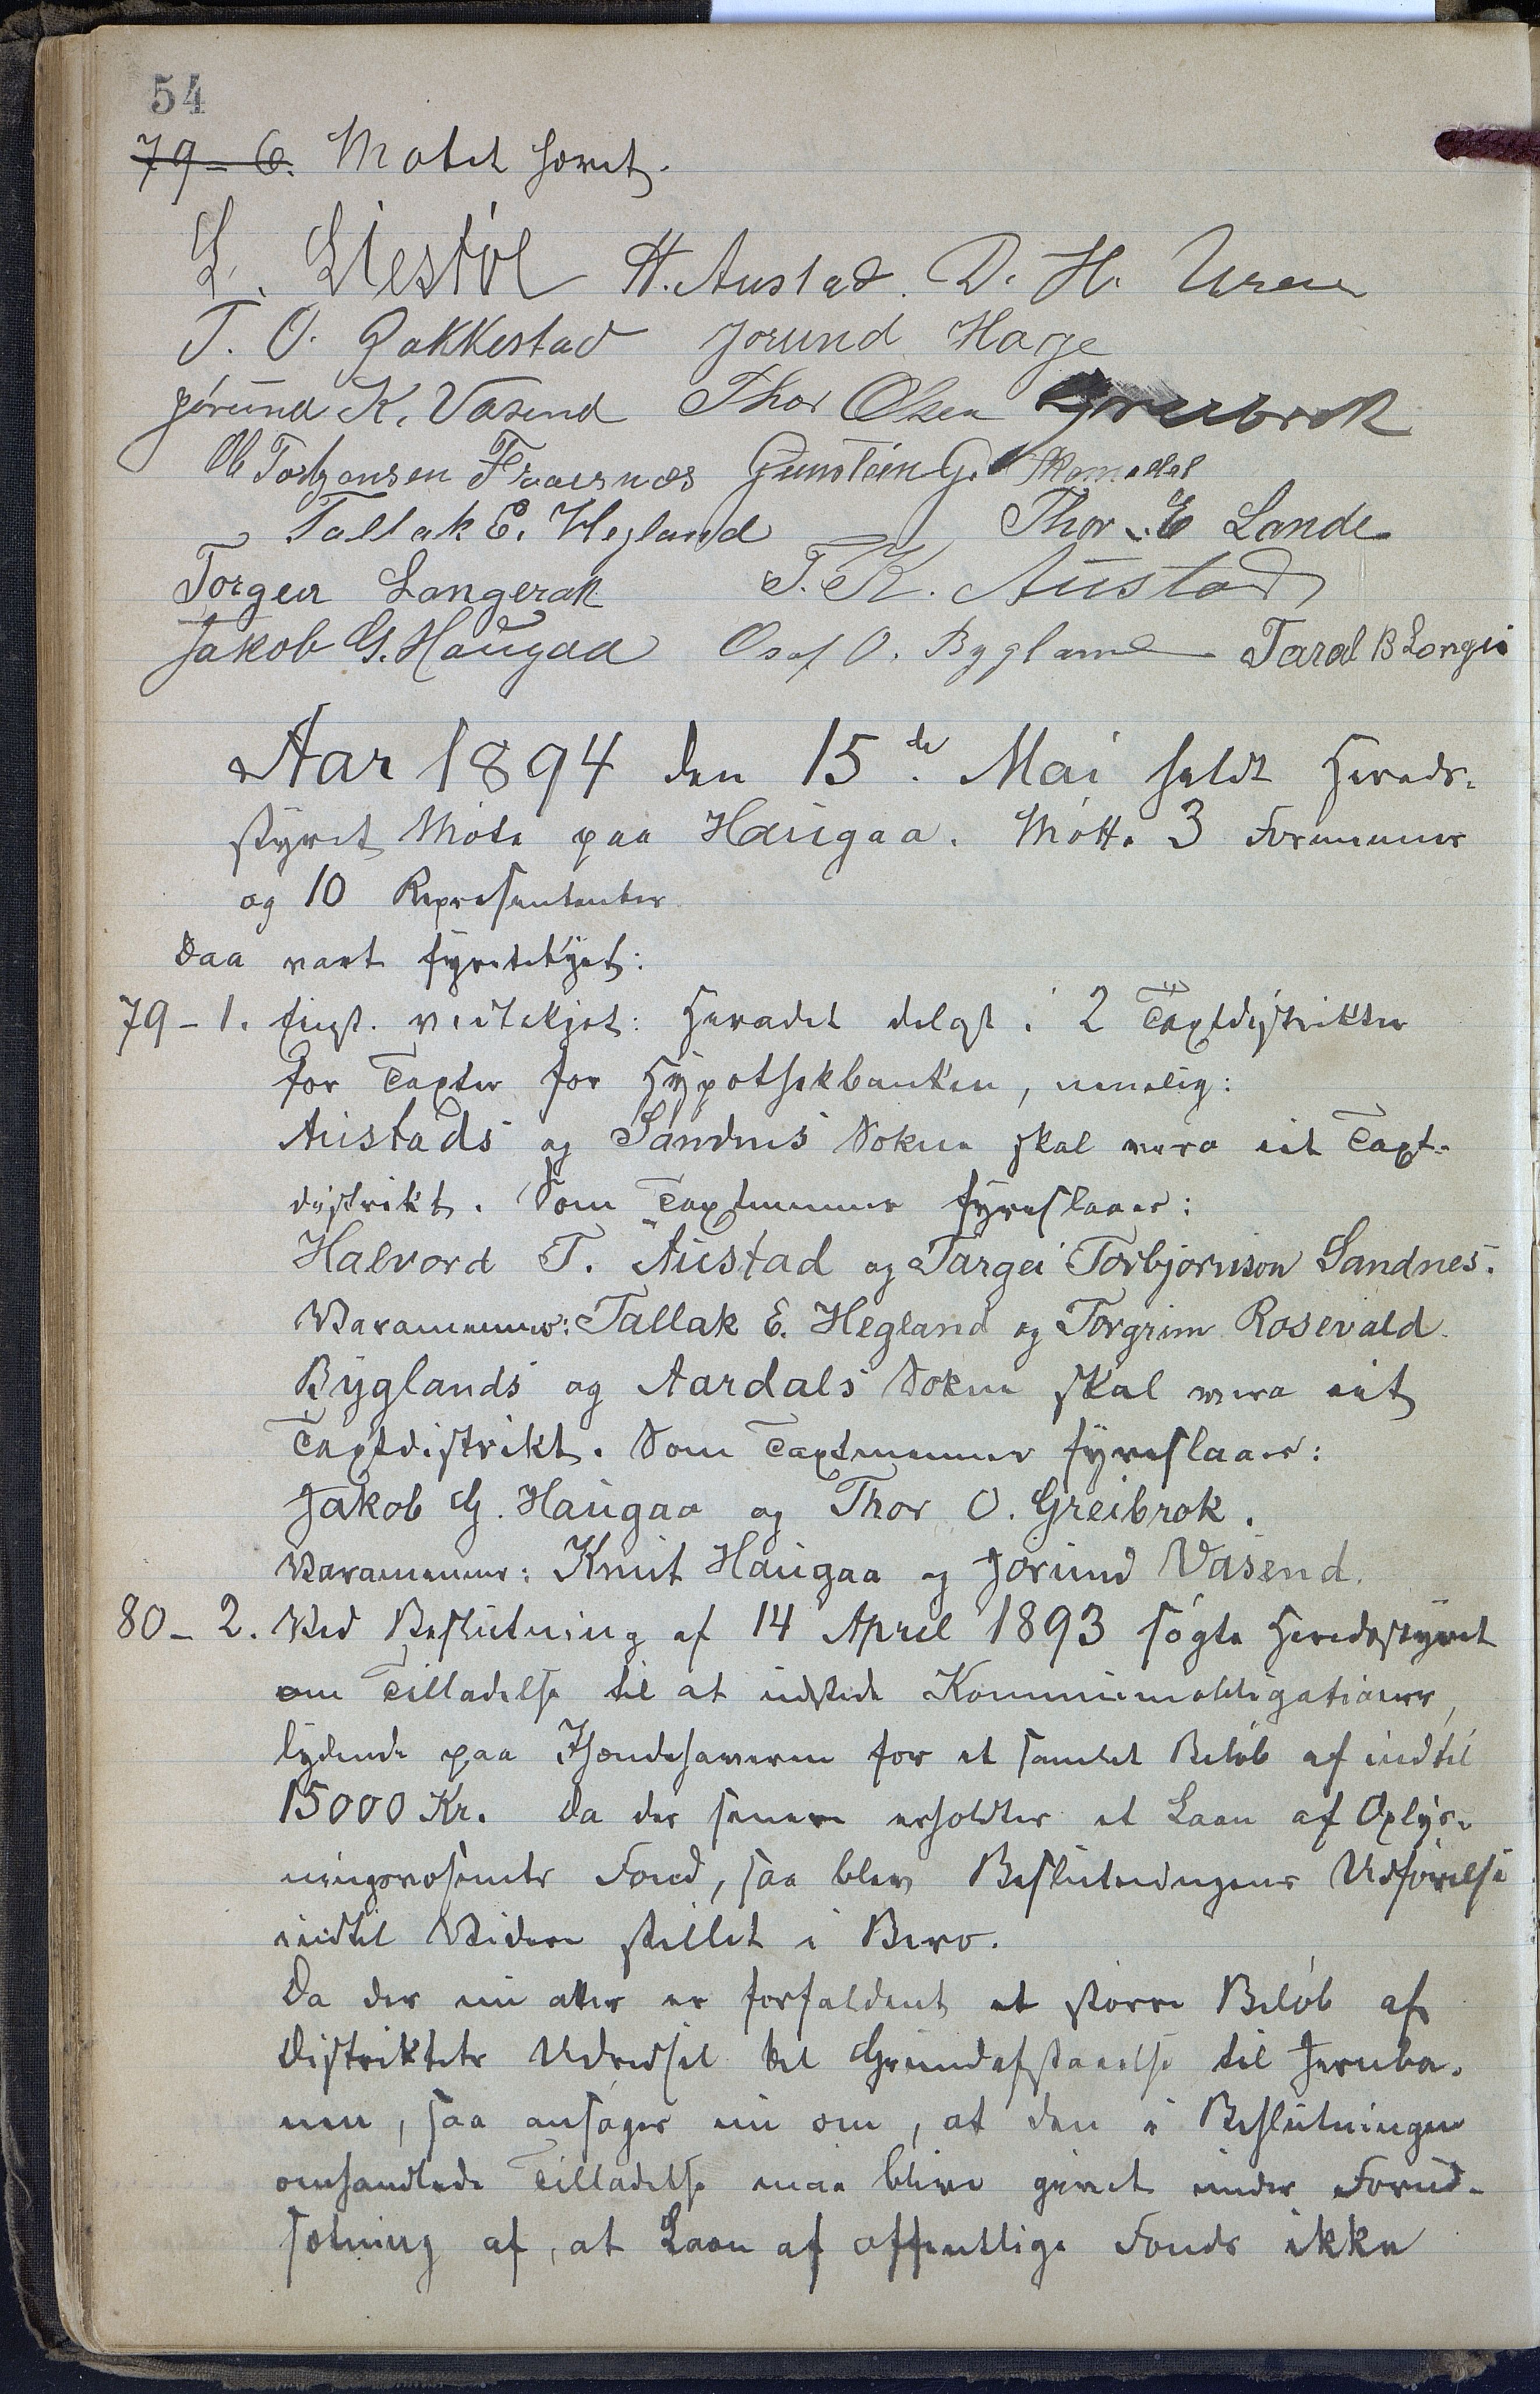 54
79-6. Møtet hevet.
L. Liestøl H. Austad. D. H. Uren
T. O. Jakkestad Jorund Hage
Jørund K. Vasend Thor Olsen Greibrok
Ole Torbjønsen Frøisnæs Gunstein G. Skomedal
Tallak E. Hegland Thor E Lande
Torgeir Langerak T. K. Austad
Jakob G. Haugaa Osuf O. Bygland Taral B Longri
Aar 1894 den 15de. Mai heldt Herads-
styret Møte paa Haugaa. Møtte 3 Formenner
og 10 Representanter
Daa vart fyreteket:
79-1. Eingt. vedtekjet: Heradet delast i 2 Taxtdistrikter
for Taxter for Hypothekbanken, nemleg:
Austads og Sandnes Sokner skal vera eit Taxt-
distrikt. Som Taxtmenner fyreslaaes:
Halvord T. Austad og Targei Torbjørnson Sandnes.
Varamenner: Tallak E. Hegland og Torgrim Rosevald.
Byglands og Aardals Sokner skal vera eit
Taxtdistrikt. Som Taxtmenner fyreslaaes:
Jakob G. Haugaa og Thor O. Greibrok.
Varamenner: Knut Haugaa og Jørund Vasend.
80-2. Ved Beslutning af 14 April 1893 søgte Heredsstyret
om Tilladelse til at udstede Kommuneobligationer,
lydende paa Ihændehaveren for et samlet Beløb af indtil
15000 Kr. Da der senere erholdtes et Laan af Oplys-
ningsvæsenets Fond, saa blev Beslutningens Udførelse
indtil Videre stillet i Bero.
Da der nu atter er forfaldent et større Beløb af
Distriktets Udredsel til Grundafstaaelse til Jernba-
nen, saa ansøges nu om, at den i Beslutningen
omhandlede Tilladelse maa blive givet under Forud-
sætning af, at Laan af offentlige Fonds ikke